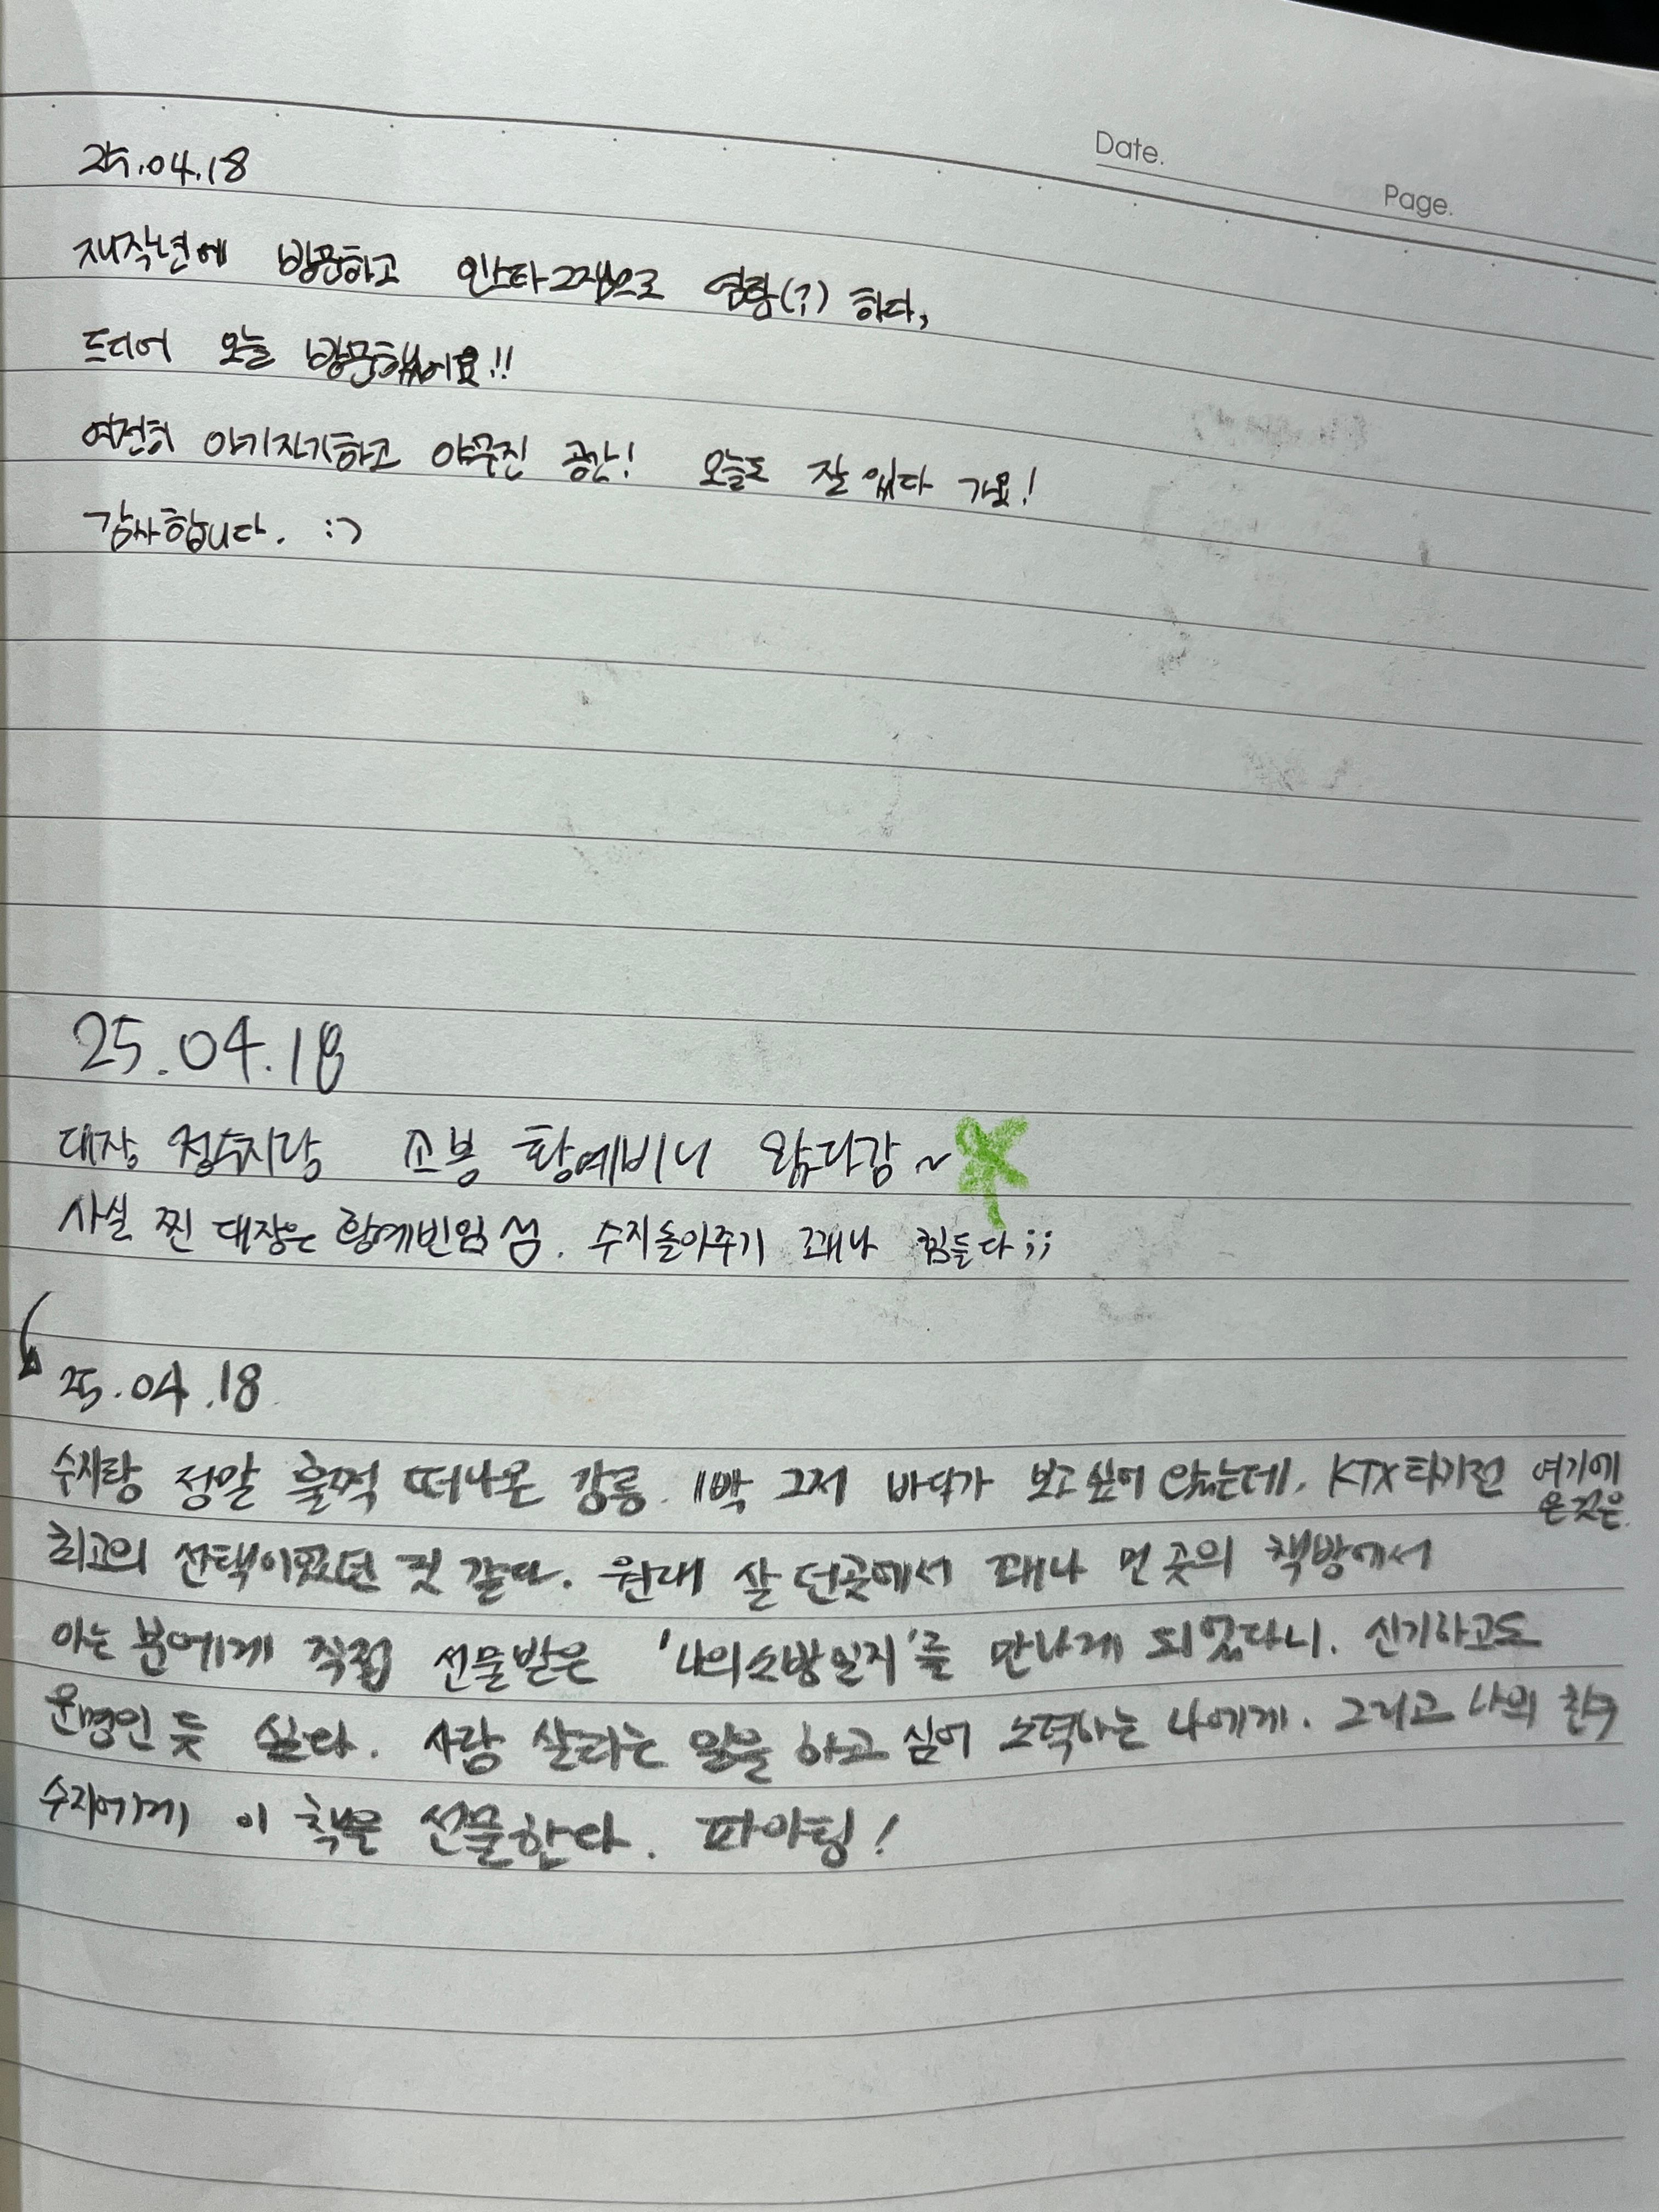 Date.
Page.
25.04.18
재작년에 방문하고 인스타그램으로 염탐(?) 하다,
드디어 오늘 방문했어요!!
여전히 아기자기하고 야무진 공간! 오늘도 잘 있다 가요!
감사합니다. :)
25.04.18
대장 정수지랑 꼬붕 황예비니 왔다감~
사실 찐 대장은 황예빈임 셤. 수지놀아주기 꽤나 힘들다;;
25.04.18
수지랑 정말 훌쩍 떠나온 강릉. 1박 그저 바다가 보고 싶어 왔는데, KTX타기전 여기에
온 것은
최고의 선택이었던 것 같다. 원래 살던곳에서 꽤나 먼 곳의 책방에서
아는 분에게 직접 선물받은 '나의소방일지'를 만나게 되었다니. 신기하고도
운명인 듯 싶다. 사람 살리는 일을 하고 싶어 노력하는 나에게. 그리고 나의 친구
수지에게 이 책을 선물한다. 파이팅!